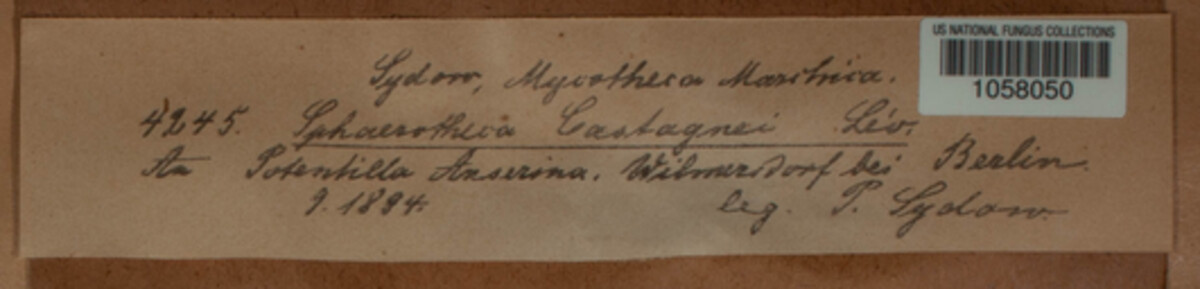 US NATIONAL FUNGUS COLLECTIONS
1058050
Sydow, Mycotheca Marchica.
4245. Sphaerotheca Castagnei Lév.
An Potentilla Anserina. Wilmersdorf bei Berlin.
9. 1894. leg. P. Sydow.